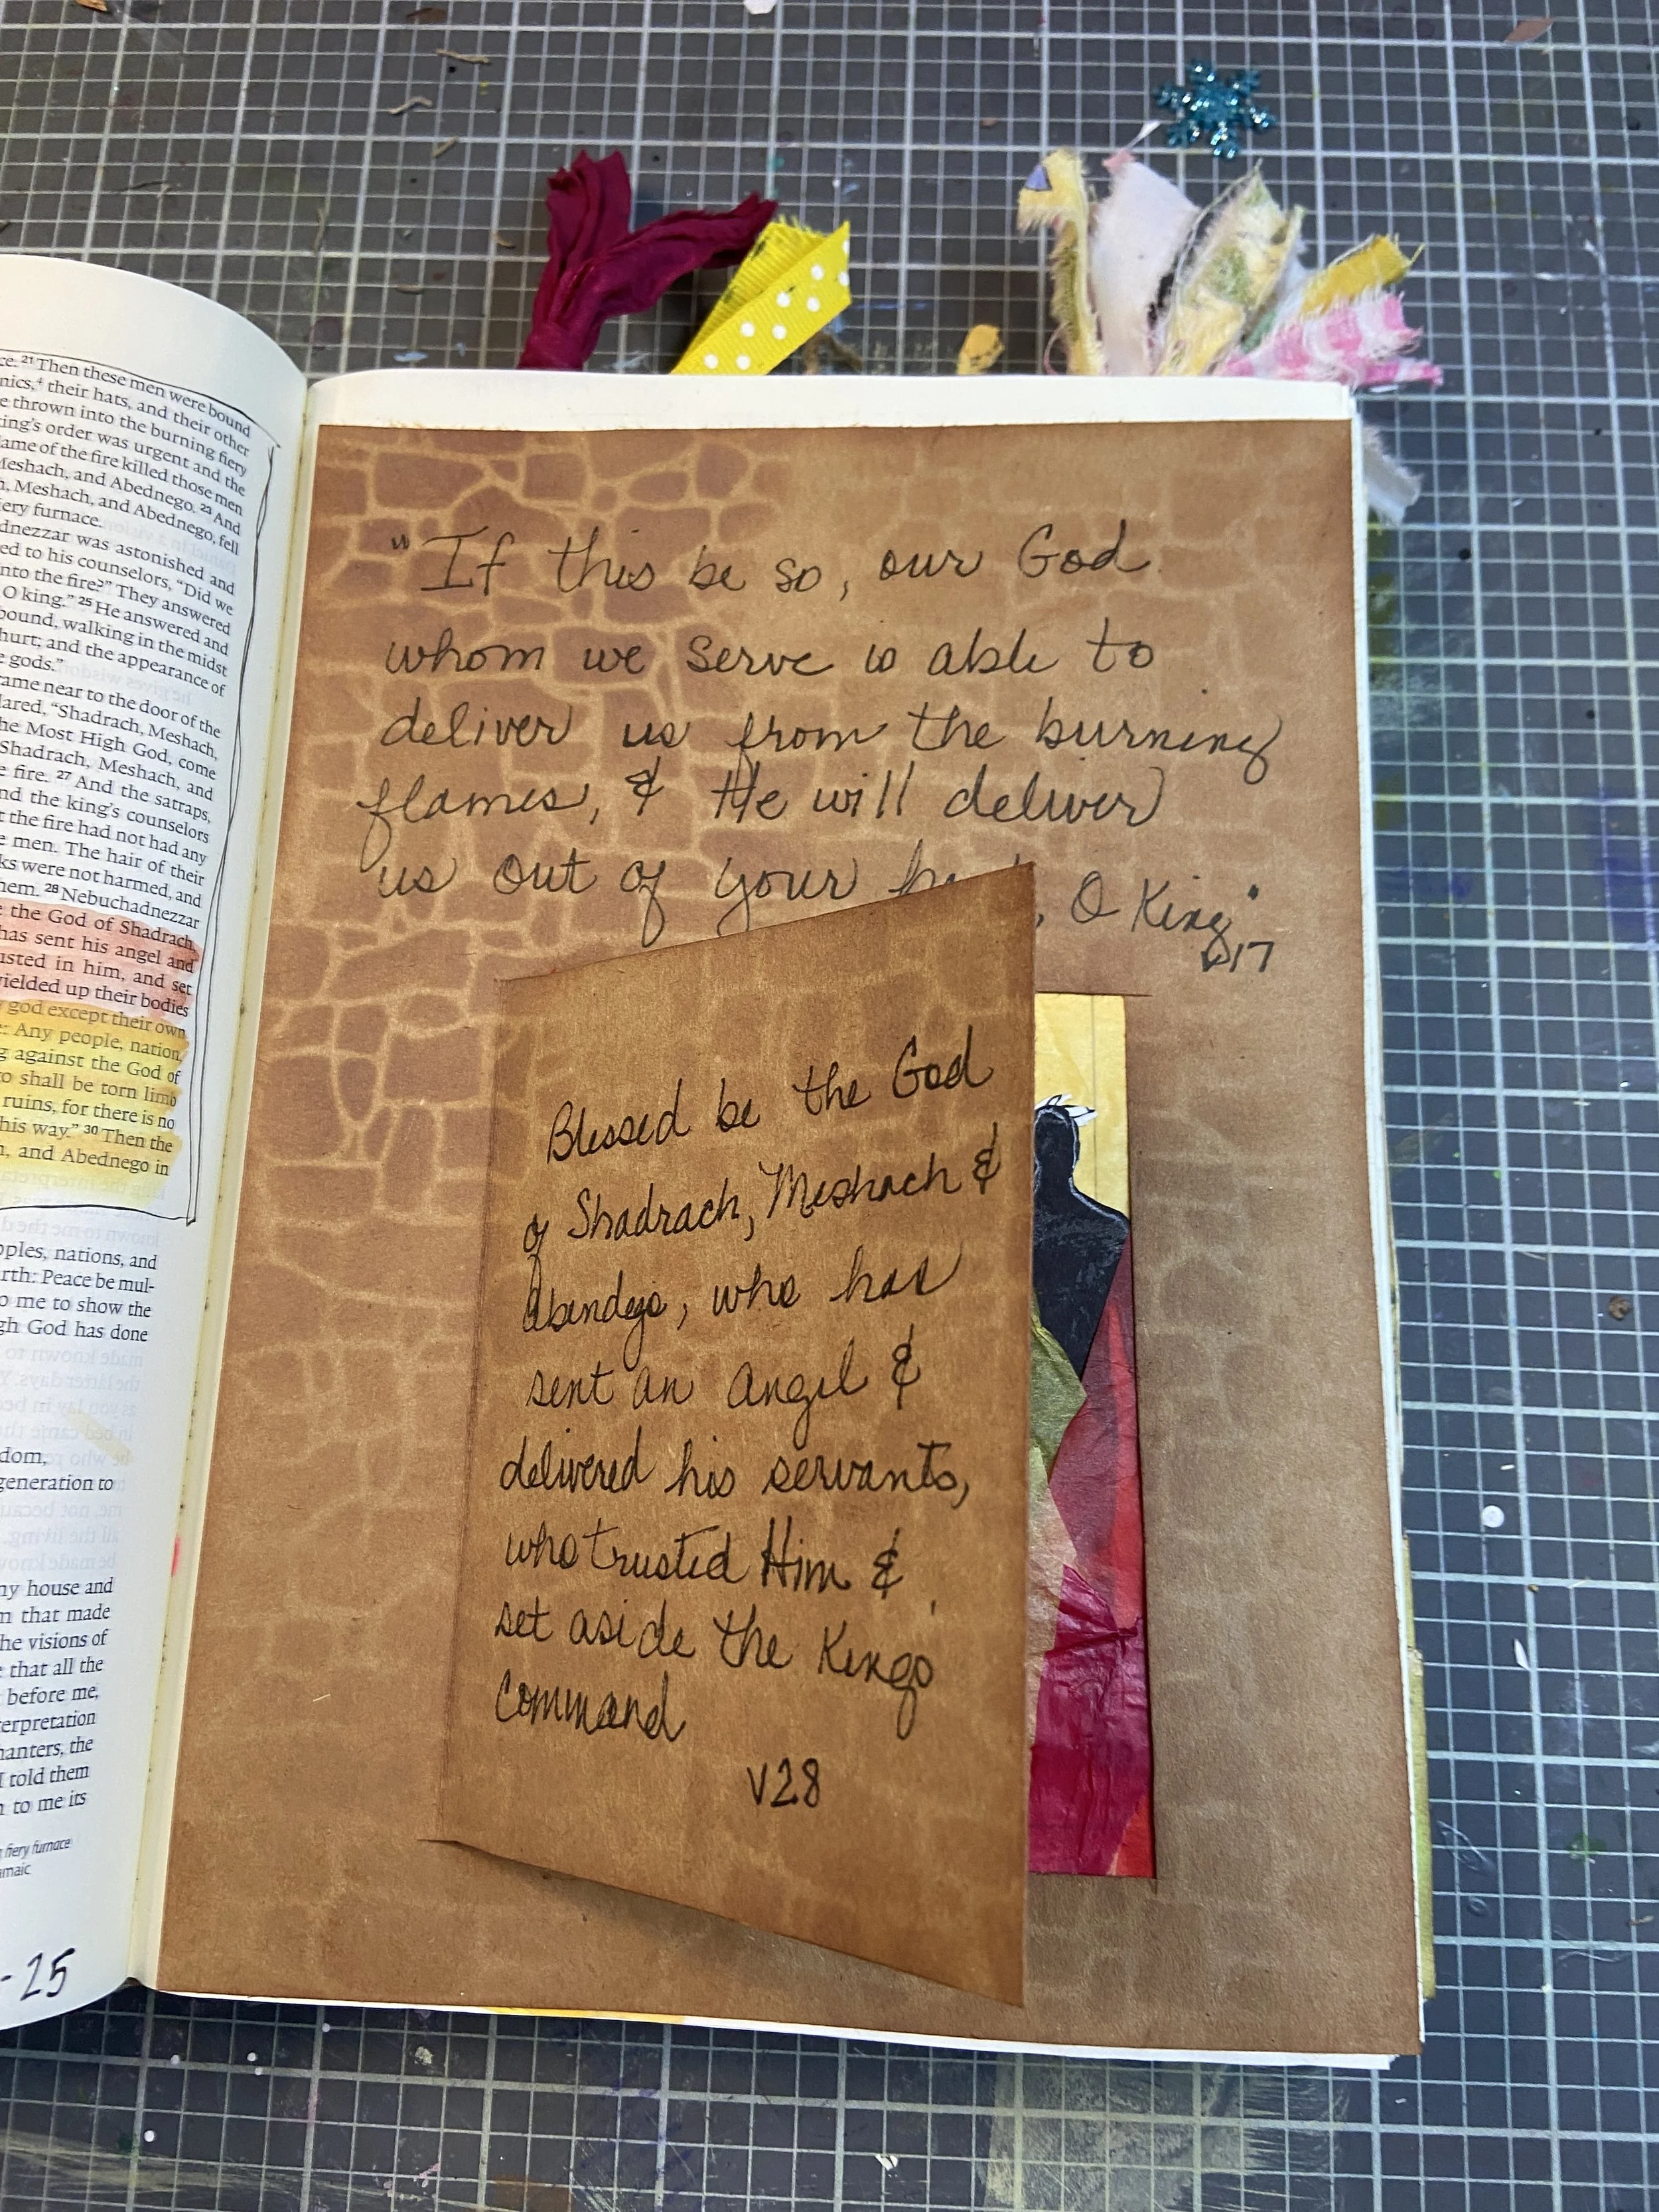 ce. 21 Then these men were bound
nics,4 their hats, and their other
e thrown into the burning fiery
king's order was urgent and the
lame of the fire killed those men
Meshach, and Abednego. 23 And
h, Meshach, and Abednego, fell
iery furnace.
dnezzar was astonished and
ed to his counselors, "Did we
into the fire?" They answered
O king." 25 He answered and
bound, walking in the midst
hurt; and the appearance of
e gods."
came near to the door of the
lared, "Shadrach, Meshach,
he Most High God, come
Shadrach, Meshach, and
e fire. 27 And the satraps,
nd the king's counselors
t the fire had not had any
e men. The hair of their
ks were not harmed, and
hem. 28 Nebuchadnezzar
e the God of Shadrach,
has sent his angel and
usted in him, and set
yielded up their bodies
y god except their own
e: Any people, nation,
g against the God of
o shall be torn limb
ruins, for there is no
his way." 30 Then the
h, and Abednego in
oples, nations, and
arth: Peace be mul-
o me to show the
gh God has done
dom,
generation to
my house and
m that made
he visions of
e that all the
before me,
terpretation
hanters, the
I told them
n to me its
fiery furnace
amaic
-25
"If this be so, our God
whom we serve is able to
deliver us from the burning
flames, & He will deliver
us out of your , O King"
v17
Blessed be the God
of Shadrach, Meshach &
Abendego, who has
sent an Angel &
delivered his servants,
who trusted Him &
set aside the Kings'
Command
V28